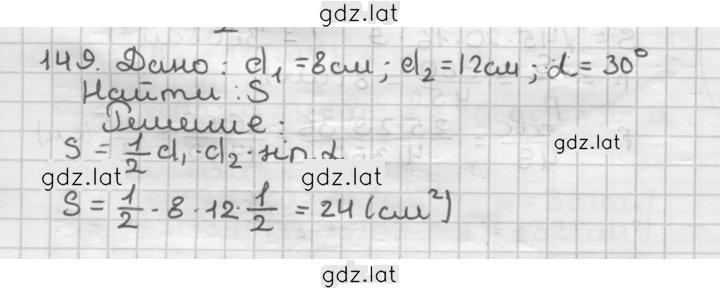 gdz.lat
149. Дано: d₁ = 8 см; d₂ = 12 см; α = 30°
Найти: S
Решение:
S = 1/2 d₁ · d₂ · sin α
gdz.lat
gdz.lat gdz.lat
S = 1/2 · 8 · 12 · 1/2 = 24 (см²)
gdz.lat